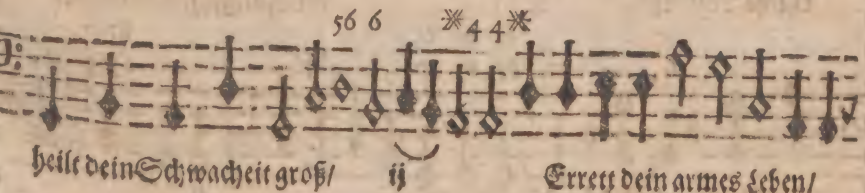 56 6 ※ 4 4 ※
heilt dein Schwacheit groß/ ij Errett dein armes Leben/